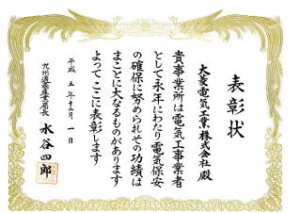 表彰状
大菱電気工事株式会社 殿
貴事業所は電気工事業者
として永年にわたり電気保安
の確保に努められその功績は
まことに大なるものがあります
よってここに表彰します
平成五年十一月一日
九州通商産業局長
水谷四郎